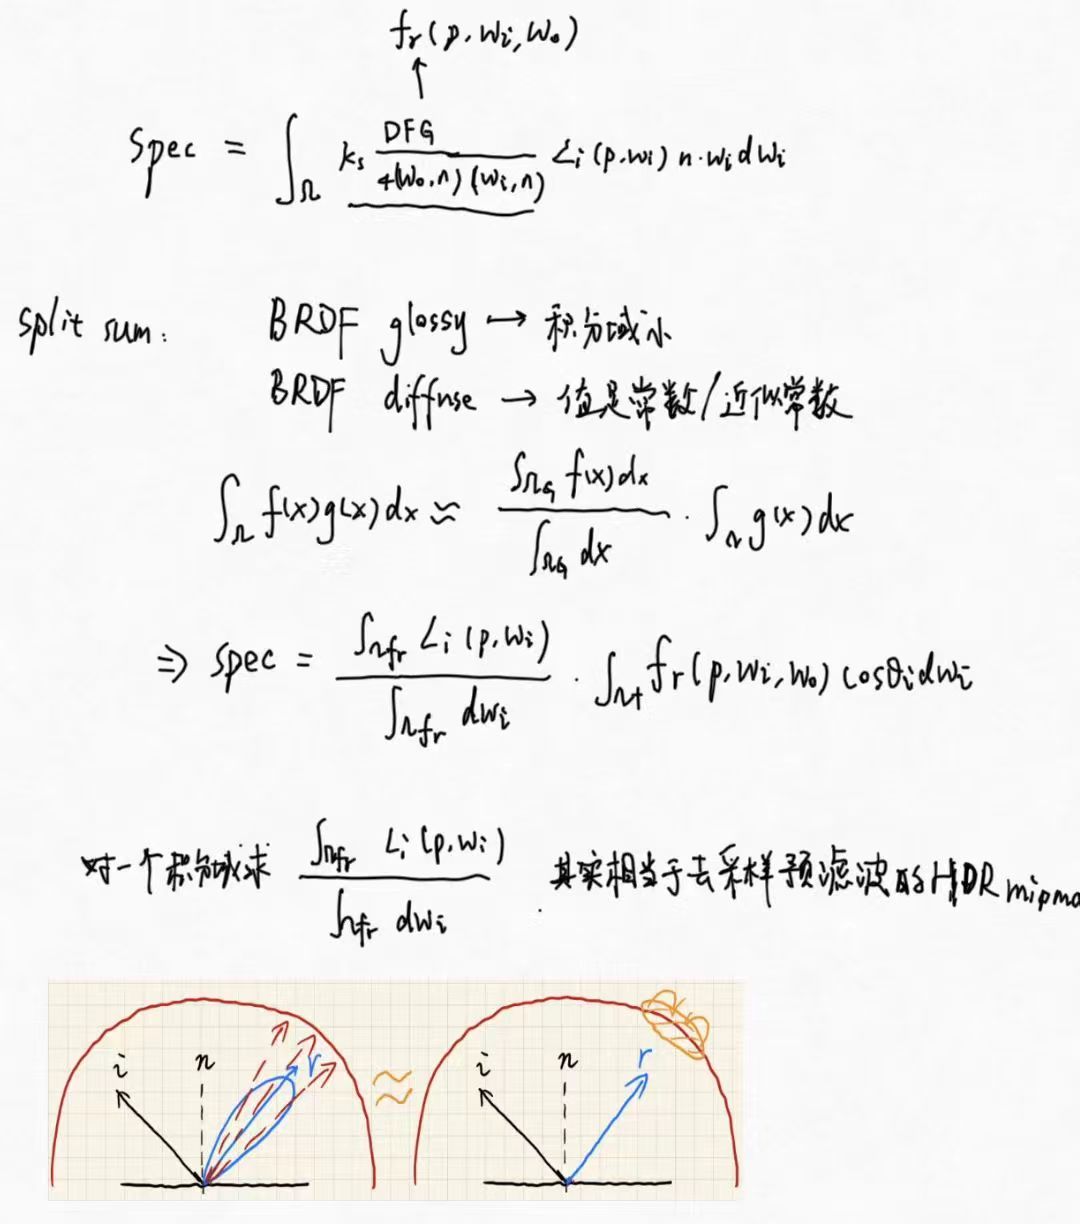 fr(p,wi,wo)
↑
Spec = ∫Ω ks DFG / 4(wo,n)(wi,n) Li(p,wi) n·wi dwi
split sum: BRDF glossy → 积分域小
BRDF diffuse → 值是常数/近似常数
∫Ω f(x)g(x)dx ≈ ∫ΩG f(x)dx / ∫ΩG dx · ∫Ω g(x)dx
⇒ spec = ∫Ωfr Li(p,wi) / ∫Ωfr dwi · ∫Ω+ fr(p,wi,wo) cosθi dwi
对一个积分域求 ∫Ωfr Li(p,wi) / ∫Ωfr dwi . 其实相当于去采样预滤波的HDR mipma
i n r ≈ i n r